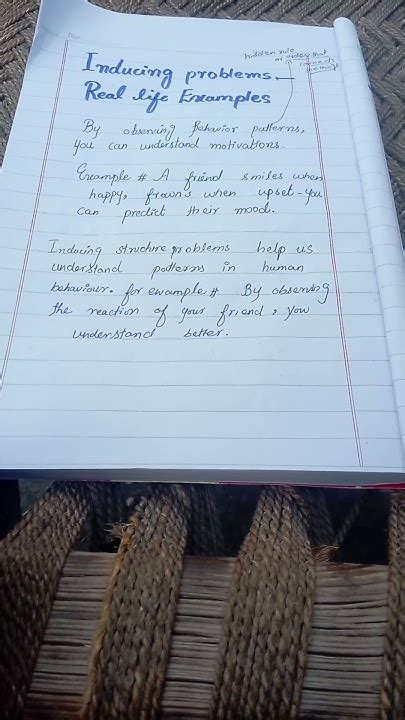 Day
hidden rule
or order that
connects
the things
Inducing problems
Real life Examples
By observing Behavior patterns,
you can understand motivations.
Example # A friend smiles when
happy, frowns when upset-you
can predict their mood.
Inducing structure problems help us
understand patterns in human
behaviour. for example #. By observing
the reaction of your friend, you
understand better.